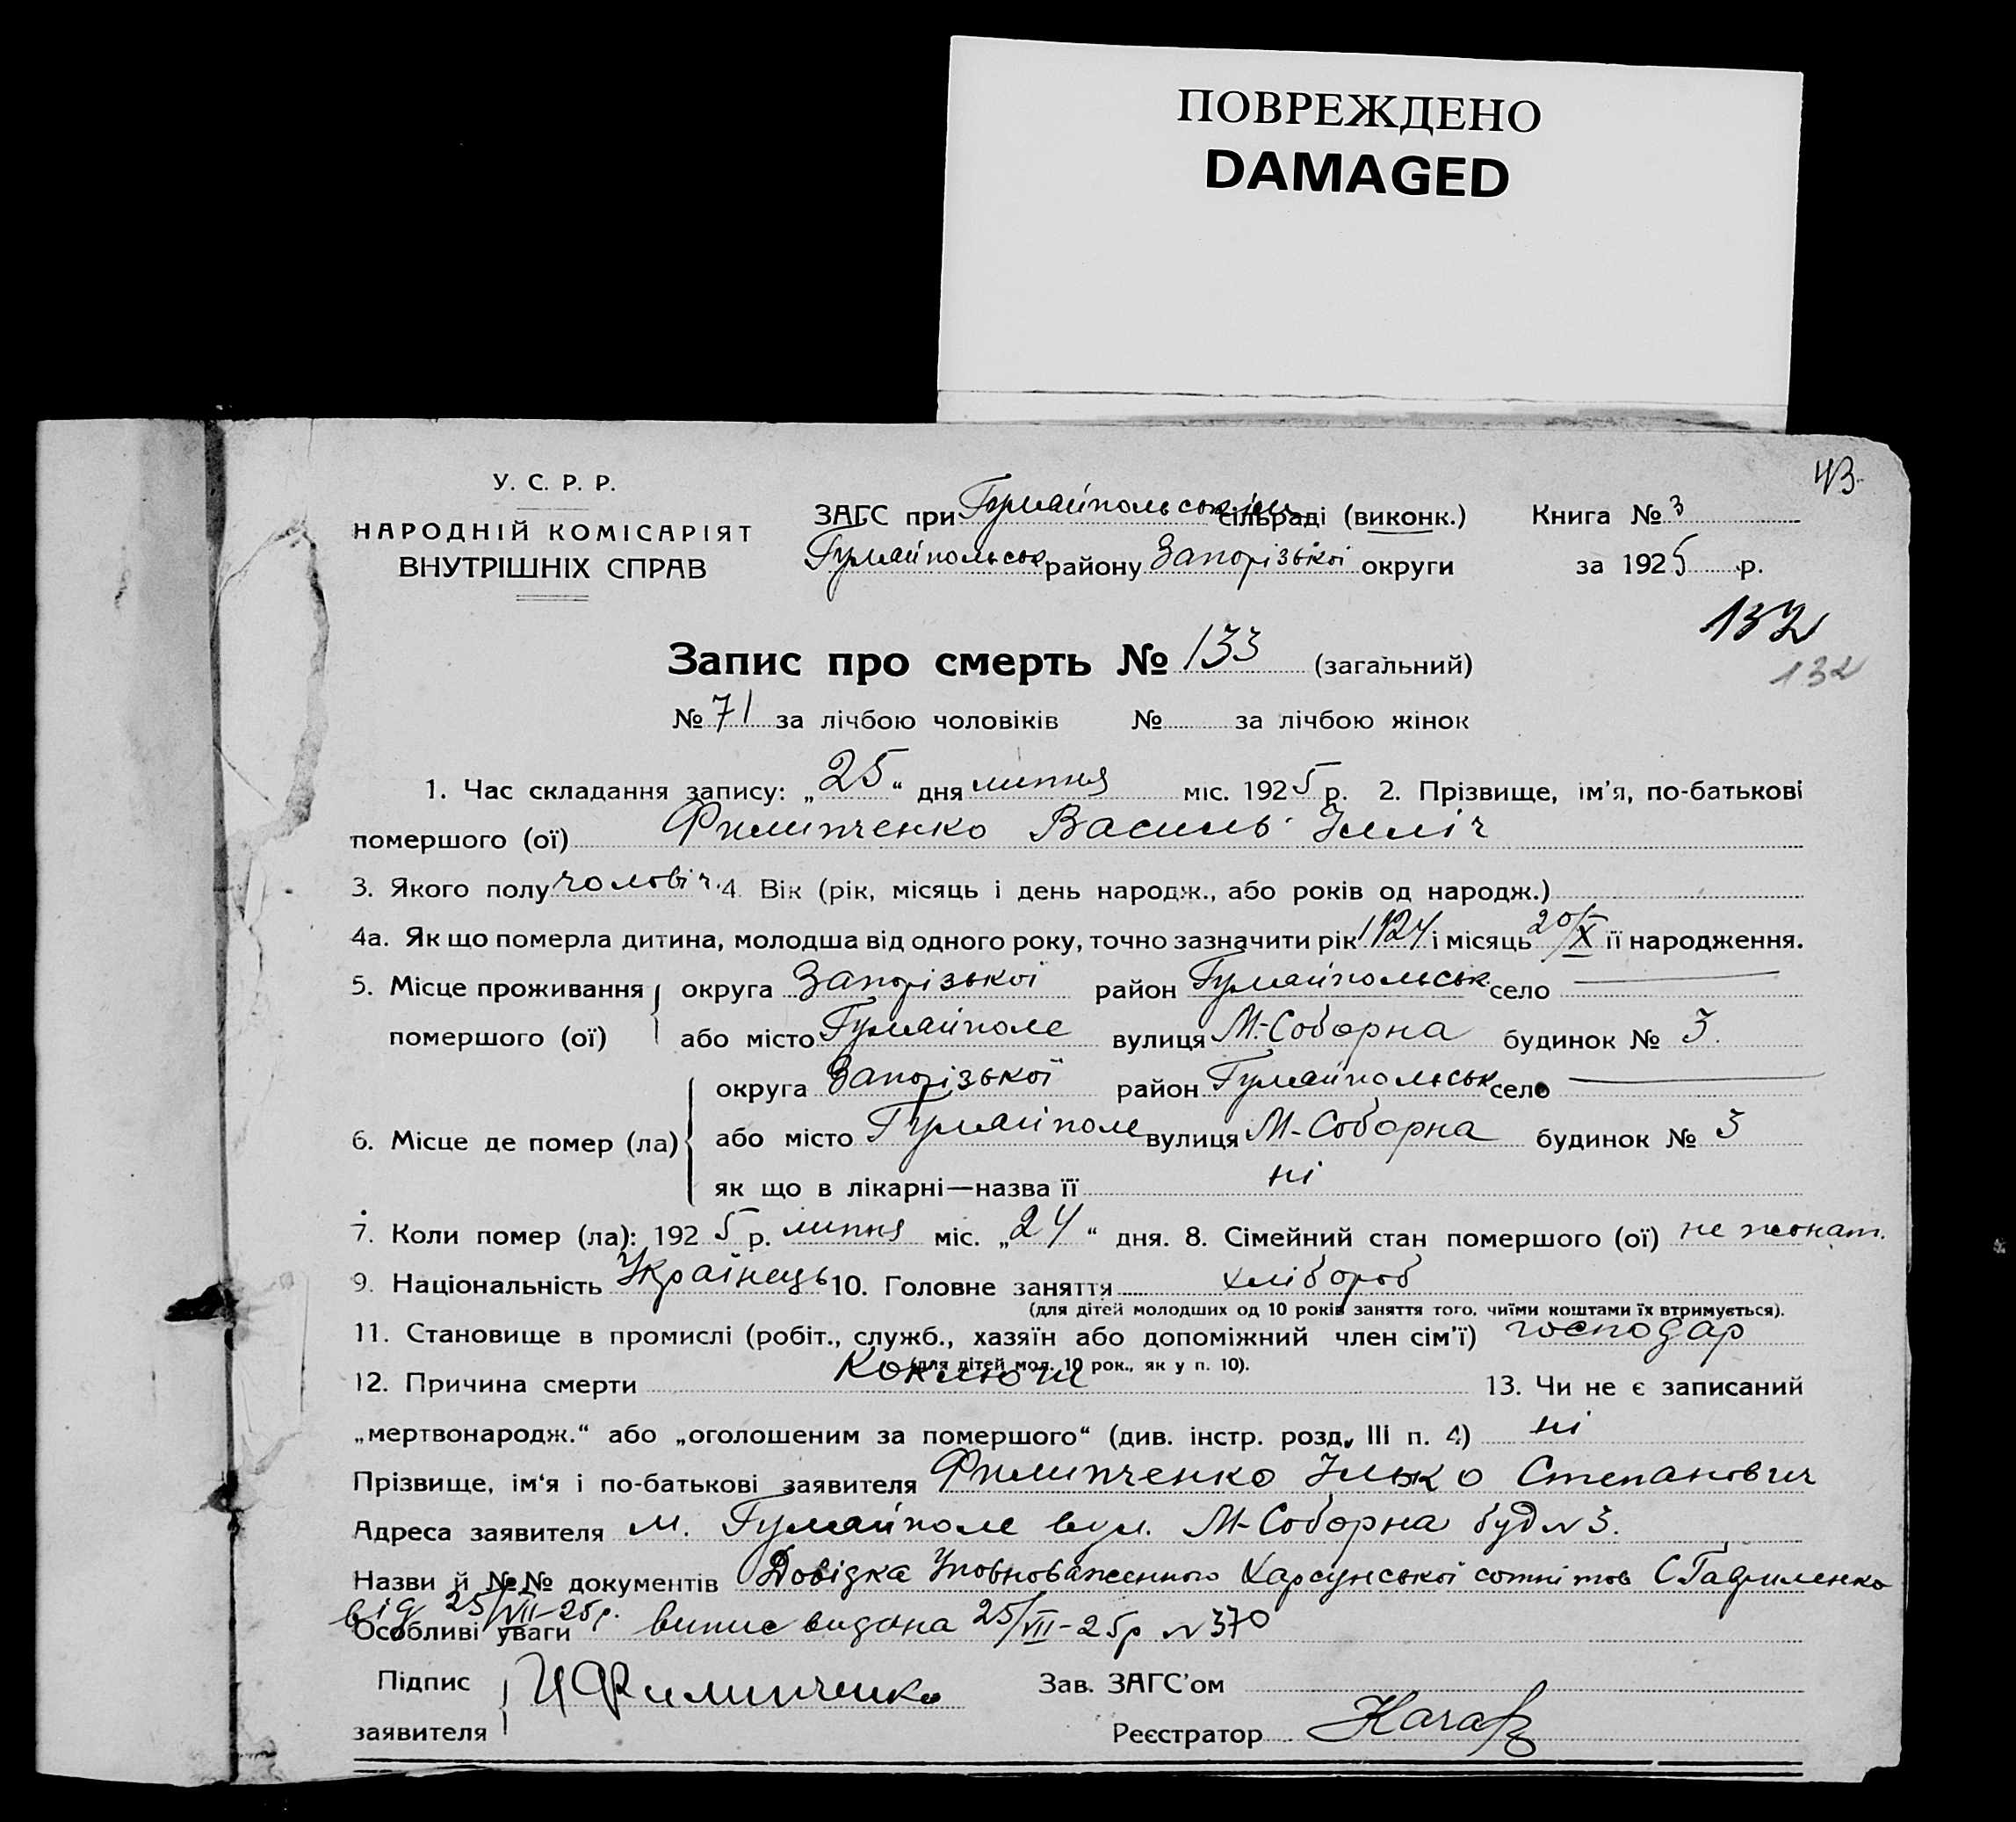 ПОВРЕЖДЕНО
DAMAGED
43
У. С. Р. Р.
НАРОДНІЙ КОМІСАРІЯТ
ВНУТРІШНІХ СПРАВ
ЗАГС при Гуляйпольськім сільраді (виконк.) Книга № 3
Гуляйпольськ району Запорізької округи за 1925 р.
132
132
Запис про смерть № 133 (загальний)
№ 71 за лічбою чоловіків № за лічбою жінок
1. Час складання запису: „25“ дня липня міс. 1925 р. 2. Прізвище, ім’я, по-батькові
помершого (ої) Филипченко Василь Ілліч
3. Якого полу чоловіч. 4. Вік (рік, місяць і день народж., або років од народж.)
4а. Як що померла дитина, молодша від одного року, точно зазначити рік 1924 і місяць 20/X її народження.
5. Місце проживання округа Запорізької район Гуляйпольськ село —
помершого (ої) або місто Гуляйполе вулиця М.-Соборна будинок № 3.
округа Запорізької район Гуляйпольськ село —
6. Місце де помер (ла) або місто Гуляйполе вулиця М-Соборна будинок № 3
як що в лікарні—назва її ні
7. Коли помер (ла): 1925 р. липня міс. „24“ дня. 8. Сімейний стан помершого (ої) не жонат.
9. Національність Українець 10. Головне заняття хлібороб
(для дітей молодших од 10 років заняття того, чиїми коштами їх втримується).
11. Становище в промислі (робіт., служб., хазяїн або допоміжний член сім’ї) господар
(для дітей мол. 10 рок., як у п. 10).
12. Причина смерти Коклюш 13. Чи не є записаний
„мертвонародж.“ або „оголошеним за помершого“ (див. інстр. розд. III п. 4) ні
Прізвище, ім‘я і по-батькові заявителя Филипченко Ілько Степанович
Адреса заявителя м. Гуляйполе вул. М-Соборна буд № 3.
Назви й №№ документів Довідка Уповноваженного Харсунської сотні тов С Гавриленко
від 25/VII-25р.
Особливі уваги випис видана 25/VII-25р № 370
Підпис
заявителя И Филипченко
Зав. ЗАГС’ом
Реєстратор